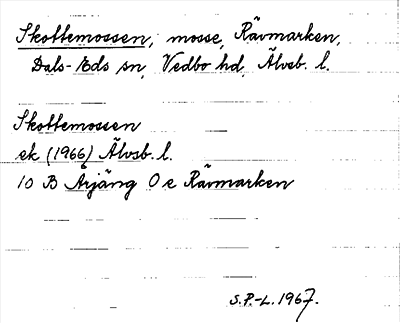 Skottemossen, mosse, Rävmarken,
Dals-Eds sn, Vedbo hd, Älvsb. l.
Skottemossen
ek (1966) Älvsb. l.
10 B Årjäng 0 e Rävmarken
S.P.-L. 1967.